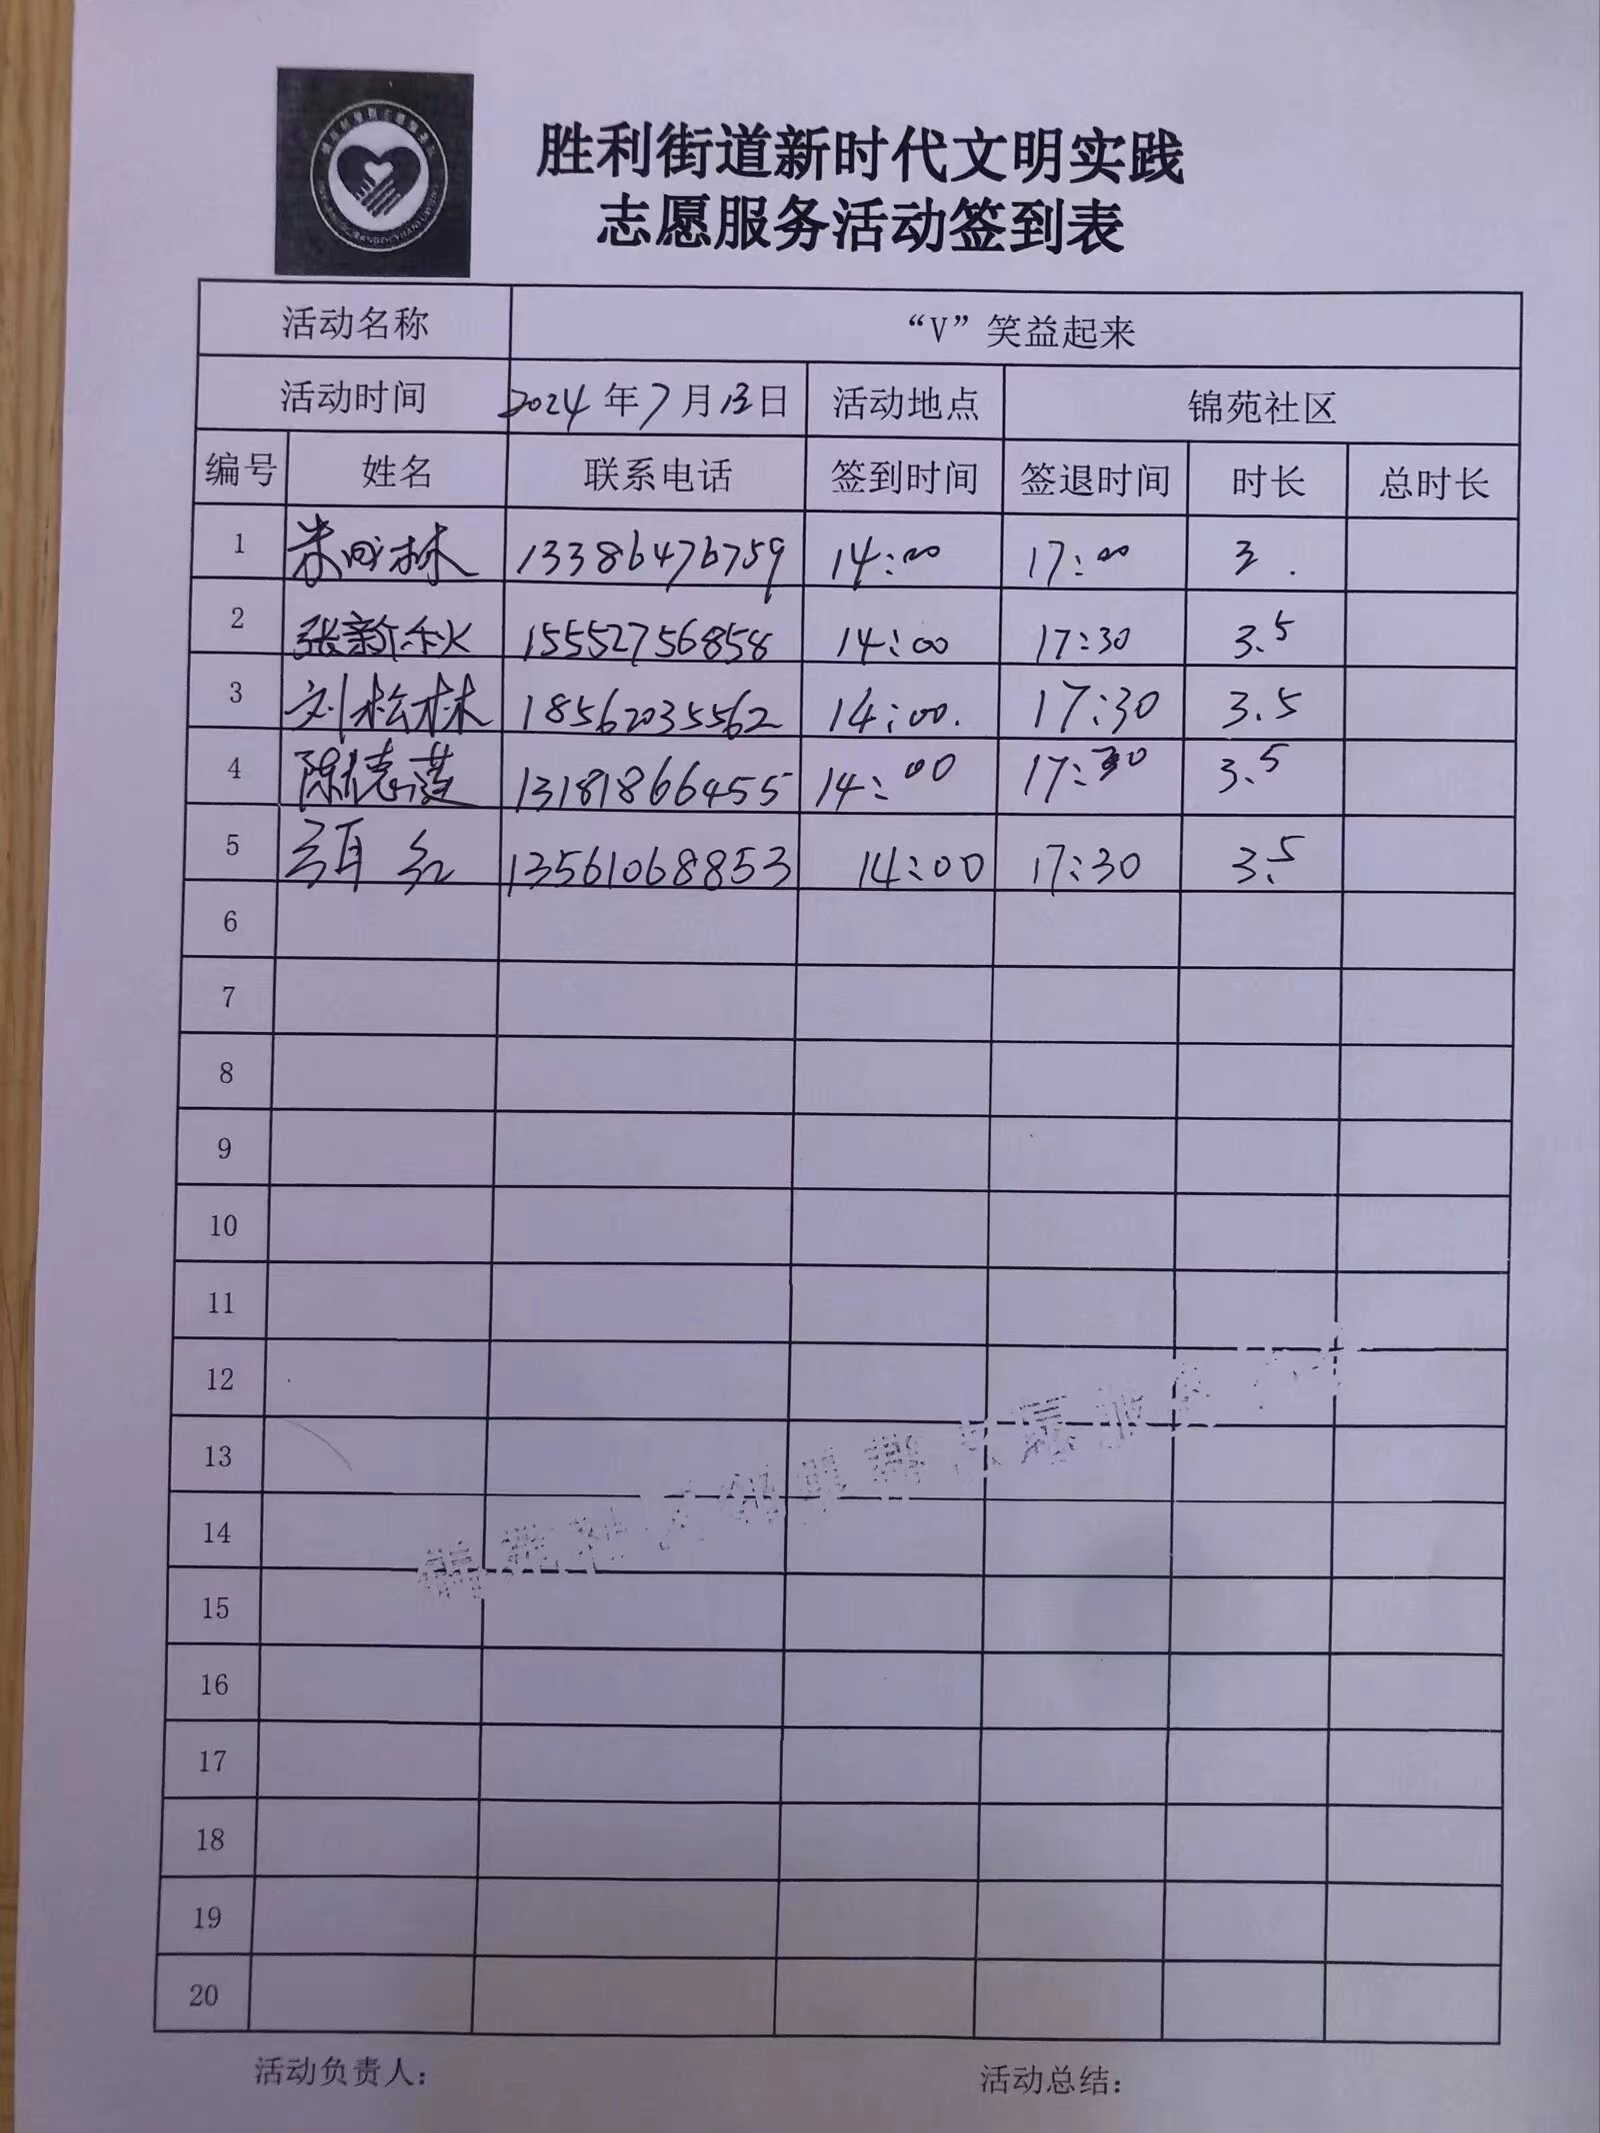 胜利街道新时代文明实践
志愿服务活动签到表
活动名称 “V”笑益起来
活动时间 2024年7月13日 活动地点 锦苑社区
编号 姓名 联系电话 签到时间 签退时间 时长 总时长
1 朱成林 13386476759 14:00 17:00 3.
2 张新秋 15552756858 14:00 17:30 3.5
3 刘松林 18562035562 14:00. 17:30 3.5
4 陈德莲 13181866455 14:00 17:30 3.5
5 红 13561068853 14:00 17:30 3.5
6
7
8
9
10
11
12
13
14
15
16
17
18
19
20
活动负责人： 活动总结：